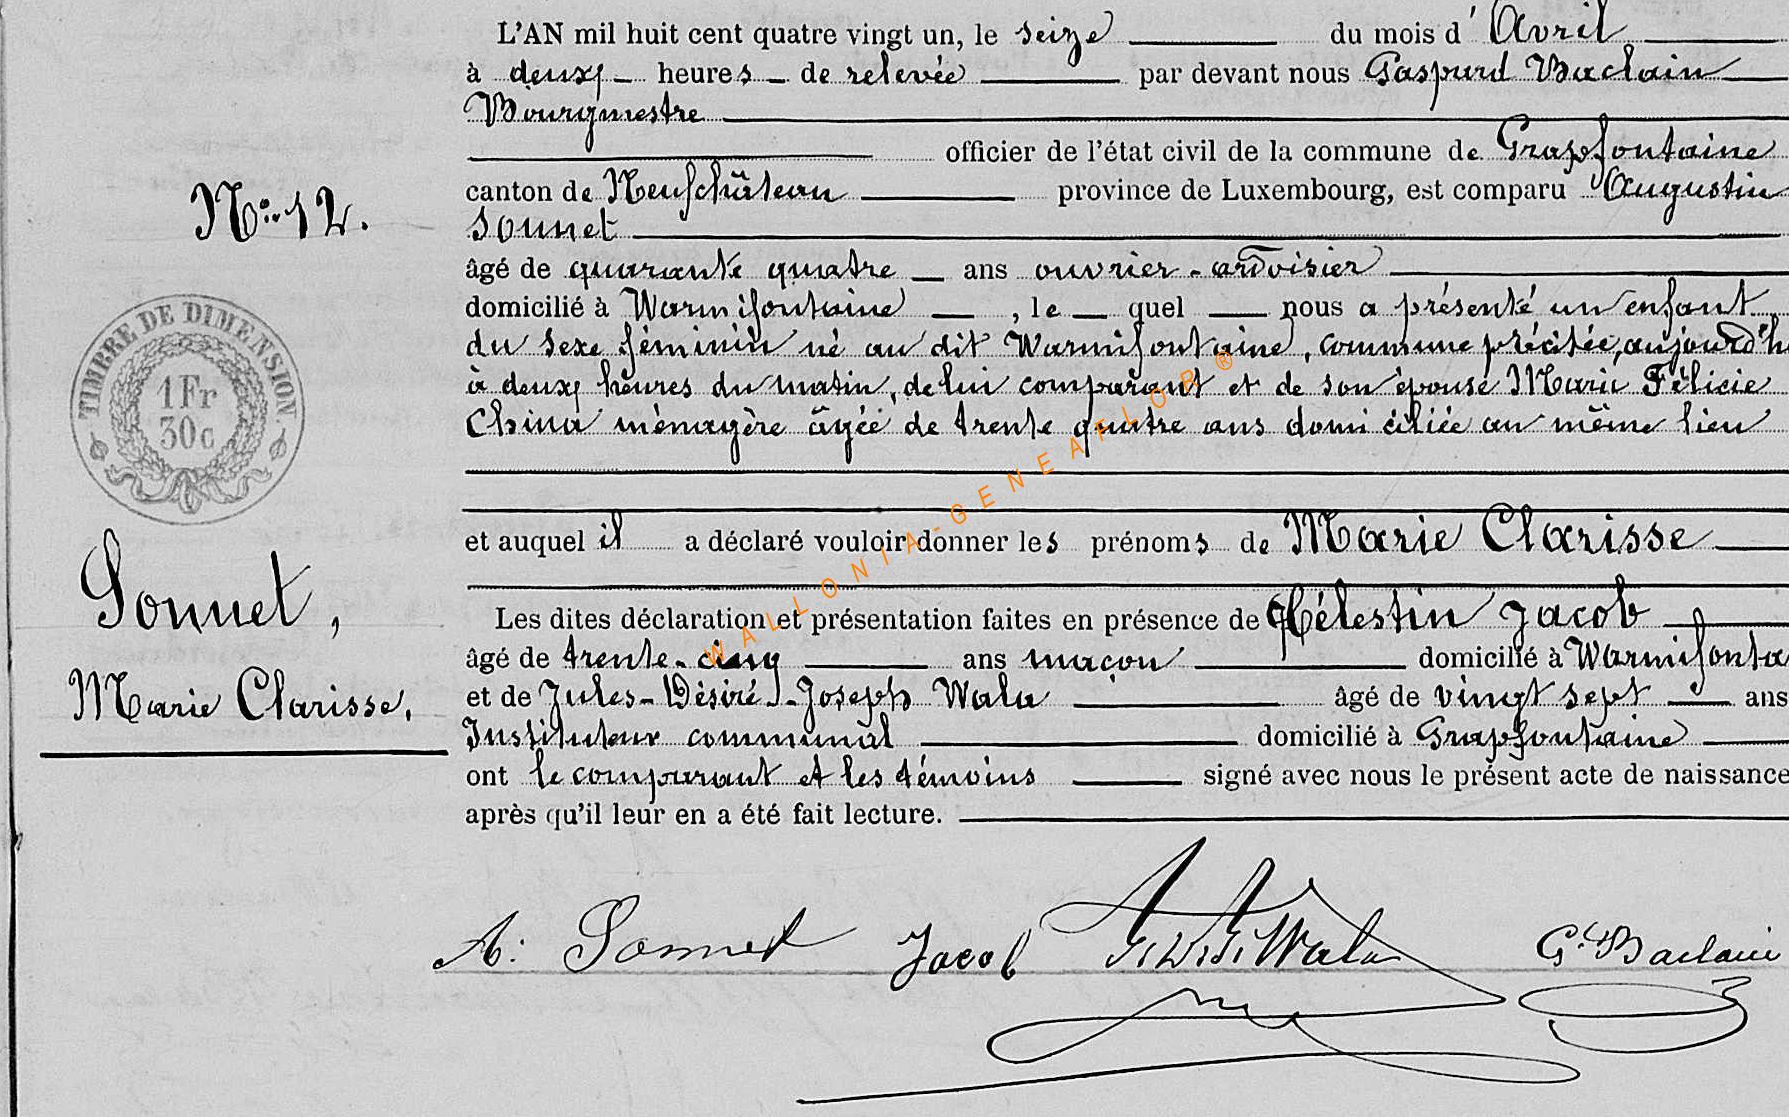 L'AN mil huit cent quatre vingt un, le seize du mois d' Avril
à deux heures de relevée par devant nous Gaspard Baclain
Bourgmestre
officier de l'état civil de la commune de Grapfontaine
canton de Neufchâteau province de Luxembourg, est comparu Augustin
Sonnet
âgé de quarante quatre ans ouvrier-ardoisier
domicilié à Warmifontaine, le quel nous a présenté un enfant
du sexe féminin né au dit Warmifontaine, commune précitée, aujourd'h
à deux heures du matin, de lui comparant et de son épouse Marie Félicie
China ménagère âgée de trente quatre ans domiciliée au même lieu
et auquel il a déclaré vouloir donner les prénoms de Marie Clarisse
Les dites déclaration et présentation faites en présence de Célestin Jacob
âgé de trente-cinq ans maçon domicilié à Warmifonta
et de Jules-Désiré-Joseph Wala âgé de vingt sept ans
Instituteur communal domicilié à Grapfontaine
ont le comparant et les témoins signé avec nous le présent acte de naissance
après qu'il leur en a été fait lecture.
A. Sonnet Jacob J.D.J. Wala G. Baclain
No. 12.
TIMBRE DE DIMENSION.
1Fr
30c
Sonnet,
Marie Clarisse.
WALLONIA-GENEAFLOR®